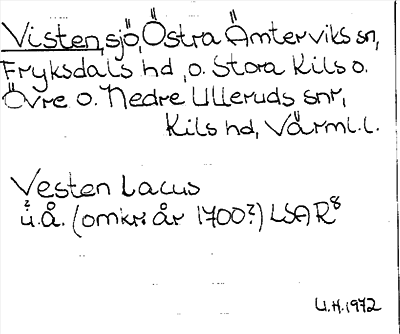 Visten, sjö, Östra Ämterviks sn,
Fryksdals hd, o. Stora Kils o.
Övre o. Nedre Ulleruds snr,
Kils hd, Värml. l.
Vesten Lacus
u.å. (omkr. år 1700?) LSAR 8
U.H. 1972